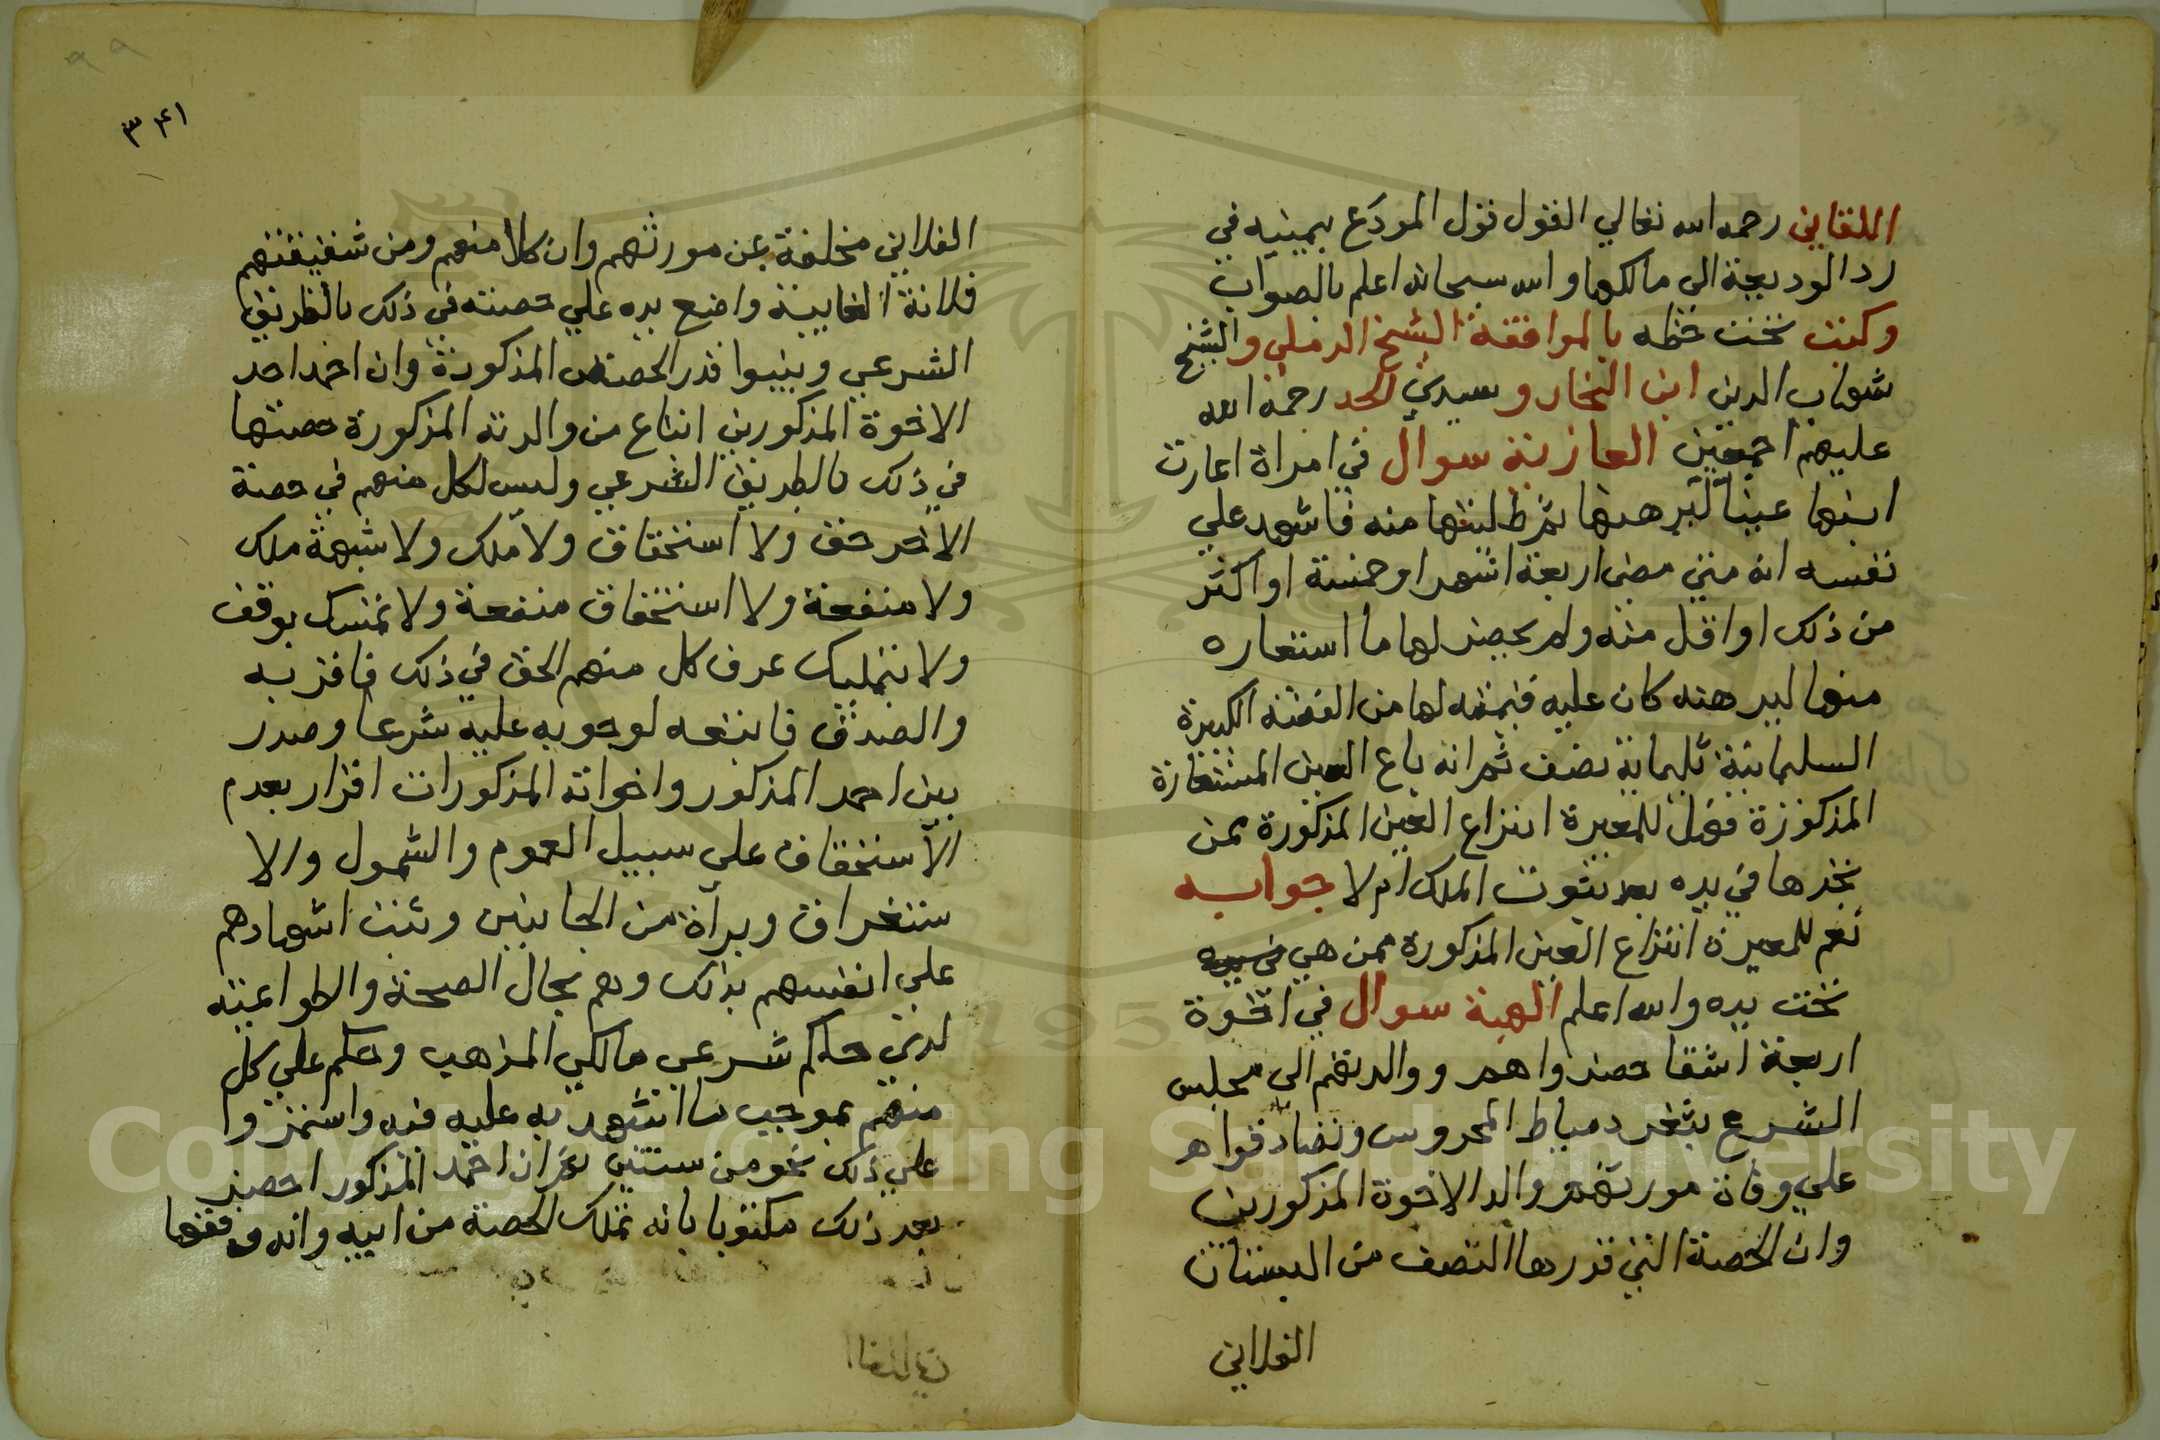 اللقاني رحمه الله تعالي القول قول المودع بيمينه في
رد الوديعة الى مالكها والله سبحانه اعلم بالصواب
وكتب تحت خطه بالموافقة الشيخ الرملي والشيخ
شهاب الدين ابن النجار وسيدي الجد رحمة الله
عليهم اجمعين العازية سوال في امراة اعارت
ابنها عينا ليرهنها ثم طلبتها منه فاشهد علي
نفسه انه متي مضى اربعة اشهر او خمسة او اكثر
من ذلك او اقل منه ولم يحضر لها ما استعاره
منها ليرهنه كان عليه قيمته لها من الفضة الكبيرة
السليمانية ثلثماية نصف ثم انه باع العين المستعارة
المذكورة فهل للمعيرة انتزاع العين المذكورة ممن
تجدها في يده بعد ثبوت الملك ام لا جوابه
نعم للمعيرة انتزاع العين المذكورة ممن هي
تحت يده والله اعلم الهبة سوال في اخوة
اربعة اشقا حضروا هم ووالدتهم الي مجلس
الشرع بثغر دمياط المحروس وتصادقوا هم
علي وفاة مورثهم والد الاخوة المذكورين
وان الحصة التي قدرها النصف من البستان
الفلاني
٣٤١
الفلاني مخلفة عن مورثهم وان كلا منهم ومن شقيقتهم
فلانة الغايبة واضع يده علي حصته في ذلك بالطريق
الشرعي وبينوا قدر الحصة المذكورة وان احمد احد
الاخوة المذكورين ابتاع من والدته المذكورة حصتها
في ذلك بالطريق الشرعي وليس لكل منهم في حصة
الاخر حق ولا استحقاق ولا ملك ولا شبهة ملك
ولا منفعة ولا استحقاق منفعة ولا تمسك بوقف
ولا بتمليك عرف كل منهم الحق في ذلك فاقر به
والصدق فاتبعه لوجوبه عليه شرعا وصدر
بين احمد المذكور واخواته المذكورات اقرار بعدم
الاستحقاق علي سبيل العموم والشمول والا
ستغراق وبرآة من الجانبين وثبت اشهادهم
علي انفسهم بذلك وهم بحال الصحة والطواعية
لدي حاكم شرعي مالكي المذهب وحكم علي كل
منهم بموجب ما اشهد به عليه فيه واستمروا
علي ذلك نحو من سنتين ثم ان احمد المذكور احضر
بعد ذلك مكتوبا بانه تملك الحصة من ابيه وانه وقفها